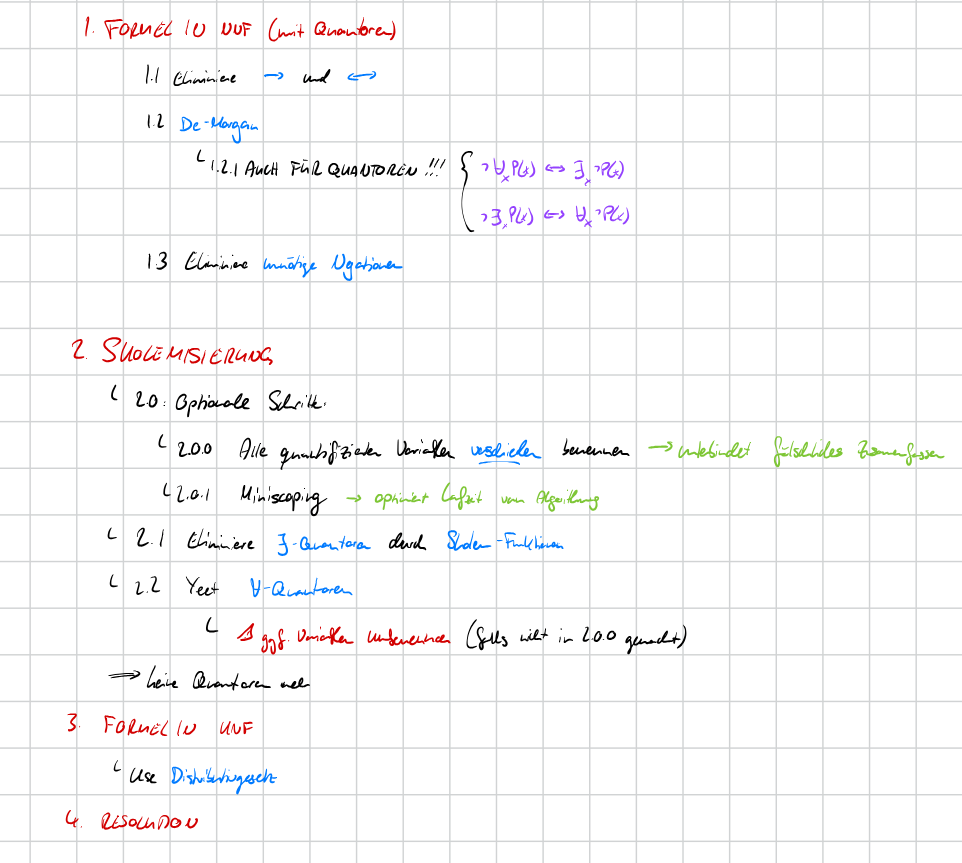 1. FORMEL IN NNF (mit Quantoren)
1.1 Eliminiere → und ↔
1.2 De-Morgan
1.2.1 AUCH FÜR QUANTOREN !!! { ¬∀ₓP(x) ↔ ∃ₓ¬P(x)
¬∃ₓP(x) ↔ ∀ₓ¬P(x)
1.3 Eliminiere unnötige Negationen
2. SKOLEMISIERUNG
2.0: Optionale Schritte:
2.0.0 Alle quantifizierten Variablen verschieden benennen → unterbindet fälschliches Zusammenfassen
2.0.1 Miniscoping → optimiert Laufzeit vom Algorithmus
2.1 Eliminiere ∃-Quantoren durch Skolem-Funktionen
2.2 Yeet ∀-Quantoren
⚠ ggf. Variablen umbenennen (falls nicht in 2.0.0 gemacht)
⇒ keine Quantoren mehr
3. FORMEL IN KNF
Use Distributivgesetz
4. RESOLUTION